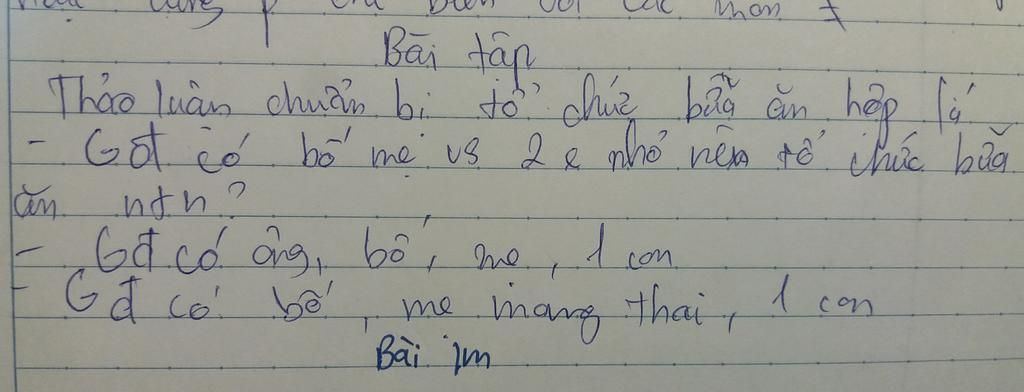 Bài tập
Thảo luận chuẩn bị tổ chức bữa ăn hợp lí
- Gđ có bố mẹ vs 2 e nhỏ nên tổ chức bữa
ăn ntn?
- Gđ có ông, bố, mẹ, 1 con
- Gđ có bố, mẹ mang thai, 1 con
Bài lm